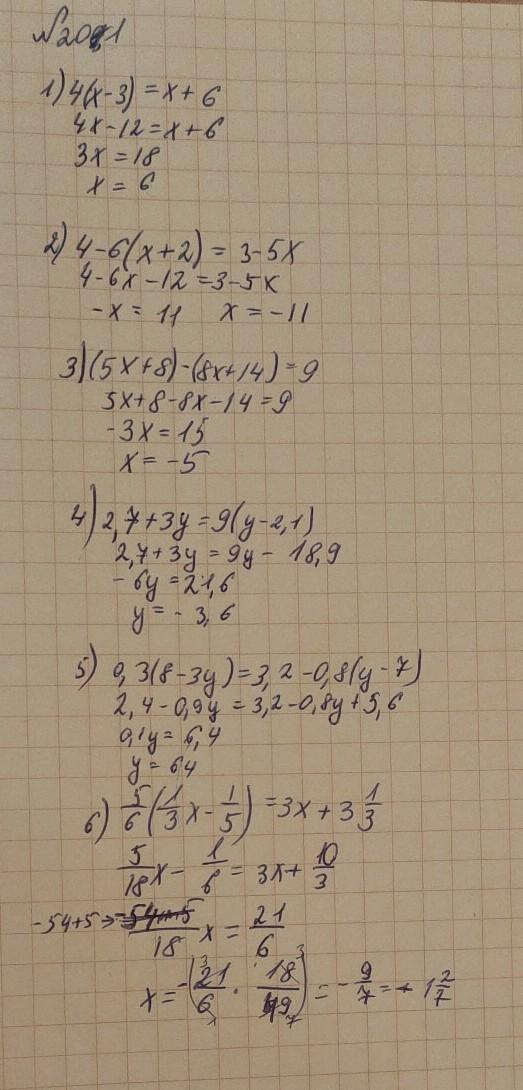 №2081
1) 4(x-3) = x + 6
4x-12 = x + 6
3x = 18
x = 6
2) 4-6(x+2) = 3-5x
4-6x-12 = 3-5x
-x = 11 x = -11
3) (5x+8)-(8x+14) = 9
5x+8-8x-14 = 9
-3x = 15
x = -5
4) 2,7+3y = 9(y-2,1)
2,7+3y = 9y - 18,9
-6y = 21,6
y = - 3,6
5) 0,3(8-3y) = 3,2-0,8(y-7)
2,4-0,9y = 3,2-0,8y+5,6
0,1y = 6,4
y = 64
6) 5/6(1/3x - 1/5) = 3x + 3 1/3
5/18x - 1/6 = 3x + 10/3
-54+5 → /18 x = 21/6
x = -(21/6 · 18/49) = -9/7 = - 1 2/7